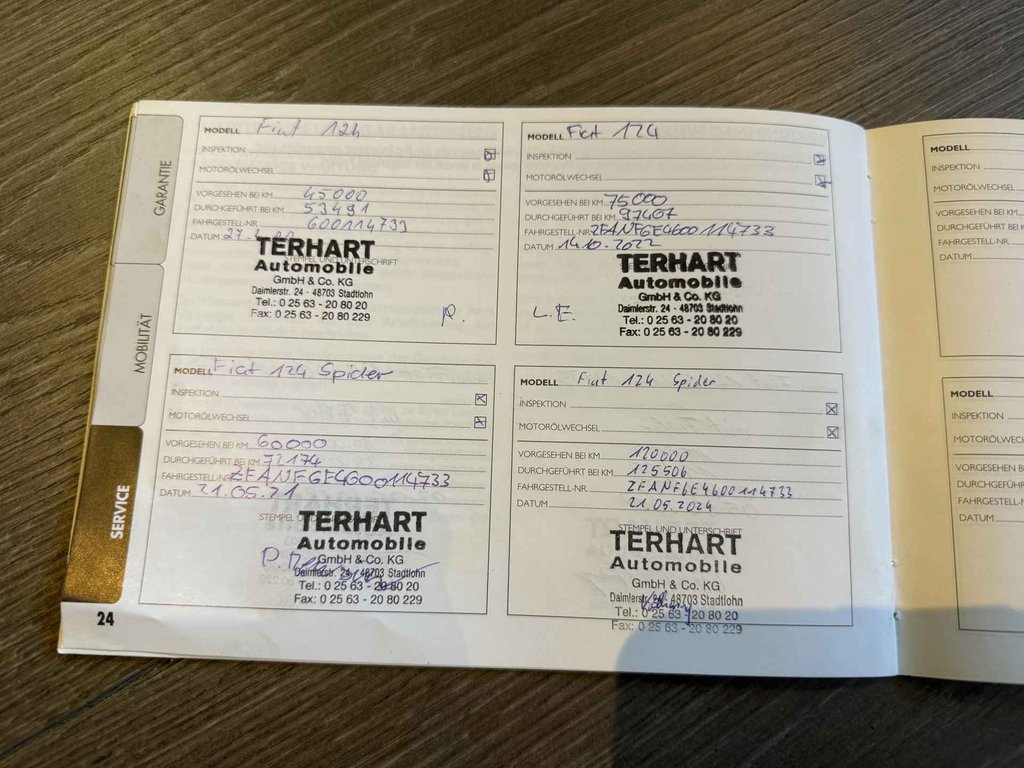 GARANTIE
MOBILITÄT
SERVICE
MODELL Fiat 124
INSPEKTION
MOTORÖLWECHSEL
VORGESEHEN BEI KM 45000
DURCHGEFÜHRT BEI KM 53491
FAHRGESTELL-NR. 600114733
DATUM 27.4.
STEMPEL UND UNTERSCHRIFT
TERHART
Automobile
GmbH & Co. KG
Daimlerstr. 24 · 48703 Stadtlohn
Tel.: 0 25 63 - 20 80 20
Fax: 0 25 63 - 20 80 229
R.
MODELL Fiat 124
INSPEKTION
MOTORÖLWECHSEL
VORGESEHEN BEI KM 75000
DURCHGEFÜHRT BEI KM 97407
FAHRGESTELL-NR. ZFANF6E4600114733
DATUM 14.10.2022
TERHART
Automobile
GmbH & Co. KG
Daimlerstr. 24 · 48703 Stadtlohn
Tel.: 0 25 63 - 20 80 20
Fax: 0 25 63 - 20 80 229
L.E.
MODELL Fiat 124 Spider
INSPEKTION
MOTORÖLWECHSEL
VORGESEHEN BEI KM 60000
DURCHGEFÜHRT BEI KM 72174
FAHRGESTELL-NR. ZFANF6E4600114733
DATUM 21.05.21
STEMPEL UND
TERHART
Automobile
GmbH & Co. KG
Daimlerstr. 24 · 48703 Stadtlohn
Tel.: 0 25 63 - 20 80 20
Fax: 0 25 63 - 20 80 229
MODELL Fiat 124 Spider
INSPEKTION
MOTORÖLWECHSEL
VORGESEHEN BEI KM 120000
DURCHGEFÜHRT BEI KM 125506
FAHRGESTELL-NR. ZFANF6E4600114733
DATUM 21.05.2024
STEMPEL UND UNTERSCHRIFT
TERHART
Automobile
GmbH & Co. KG
Daimlerstr. 24 · 48703 Stadtlohn
Tel.: 0 25 63 - 20 80 20
Fax: 0 25 63 - 20 80 229
24
MODELL
INSPEKTION
MOTORÖLWECHSEL
VORGESEHEN BEI KM
DURCHGEFÜHR
FAHRGESTELL-NR.
DATUM
MODELL
INSPEKTION
MOTORÖLWECH
VORGESEHEN BE
DURCHGEFÜHR
FAHRGESTELL-N
DATUM